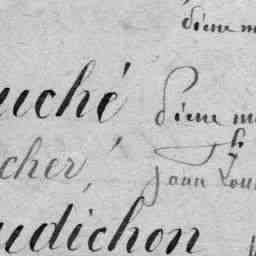 dieme m
uché dieme m
cher, Jean Lou
udichon